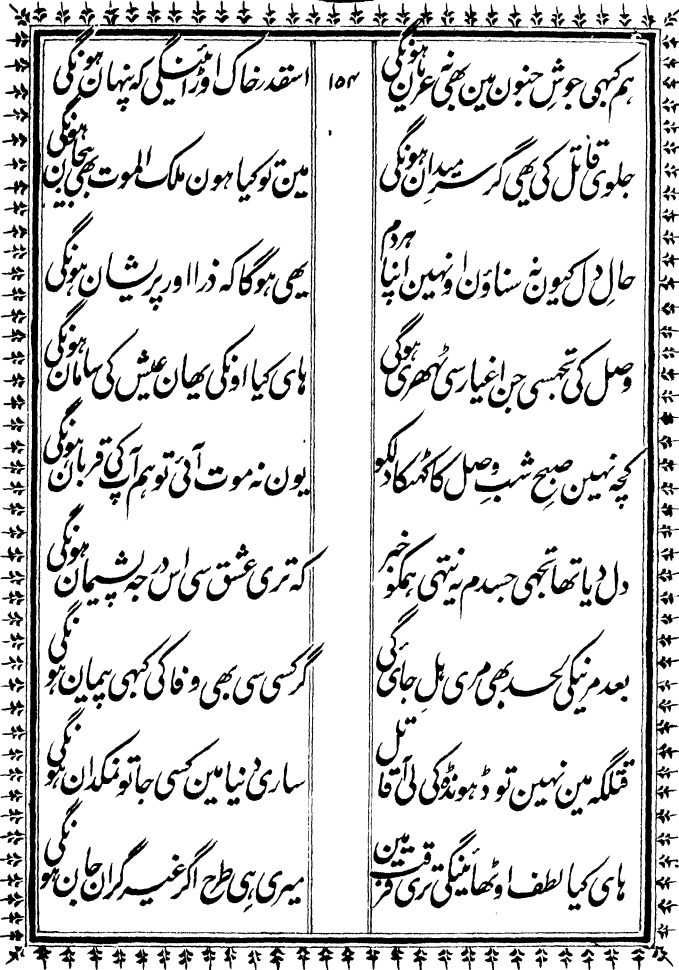 ۱۵۴
ہم کبہی جوشِ جنون مین بھی نہ عریان ہونگی
اسقدر خاک اوڑائینگی کہ پنہان ہونگی
جلوی قاتل کی بھی گر سرِ میدان ہونگی
مین تو کیا ہون ملک الموت بھی بیجان ہونگی
حالِ دل کیون نہ سناؤن اونہین اپنا ہردم
یھی ہوگا کہ ذرا اور پریشان ہونگی
وصل کی تجہسی جن اغیار سی ٹھری ہوگی
ہای کیا اونکی یھان عیش کی سامان ہونگی
کچہ نہین صبحِ شبِ وصل کا کھٹکا دلکو
یون نہ موت آئی تو ہم آپ کی قربان ہونگی
دل دیا تھا تجہی جسدم یہ نتہی ہمکو خبر
کہ تری عشق سی اس درجہ پشیمان ہونگی
بعد مرنیکی لحد بھی مری ہل جائگی
گر کسی سی بھی وفا کی کبہی پیمان ہونگی
قتلگہ مین نہین تو ڈہونڈہ کی لی آ قاتل
ساری دنیا مین کسی جا تو نمکدان ہونگی
ہای کیا لطف اوٹھائینگی تری فرقت مین
میری ہی طرح اگر غیر گران جان ہونگی